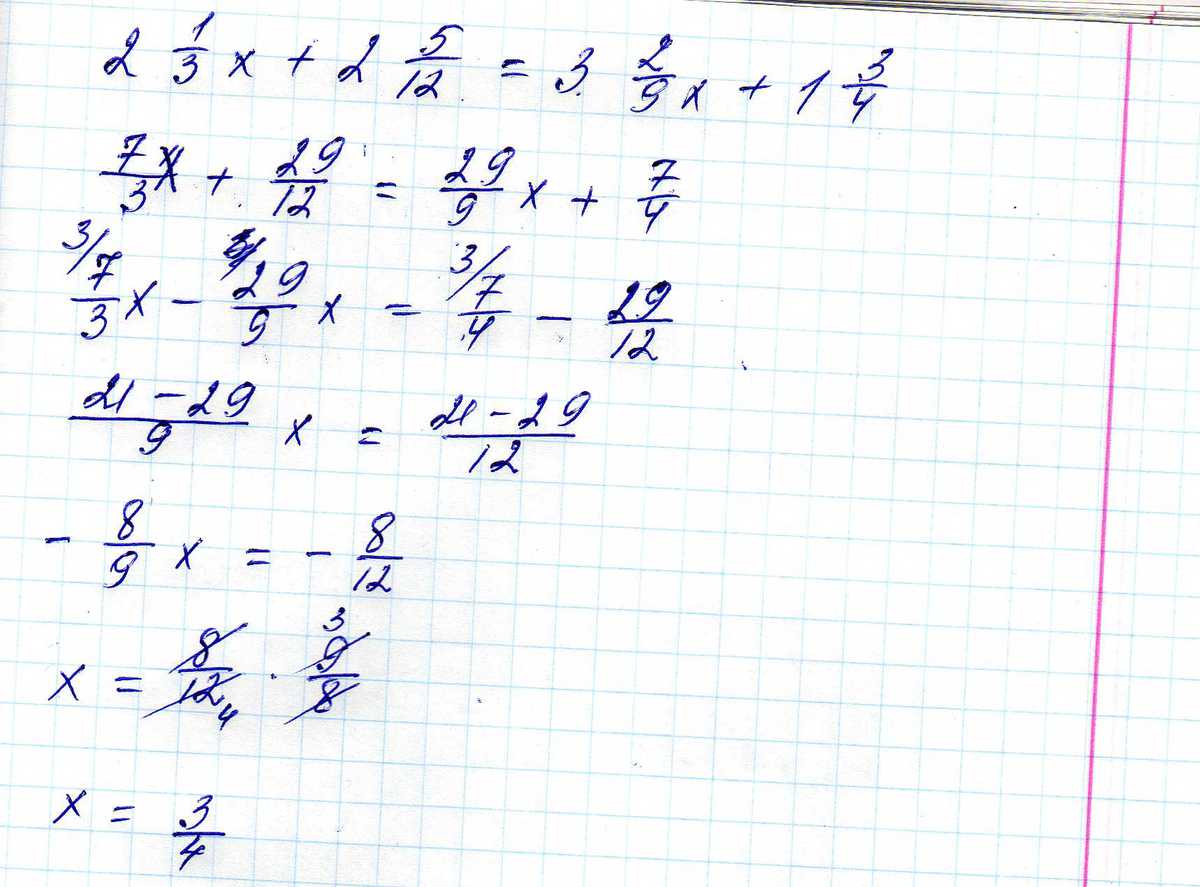 2 1/3 x + 2 5/12 = 3 2/9 x + 1 3/4
7/3 x + 29/12 = 29/9 x + 7/4
3/ 7/3 x - 29/9 x = 3/ 7/4 - 29/12
(21 - 29)/9 x = (21 - 29)/12
- 8/9 x = - 8/12
x = 8/12 4 · 3 9/8
x = 3/4